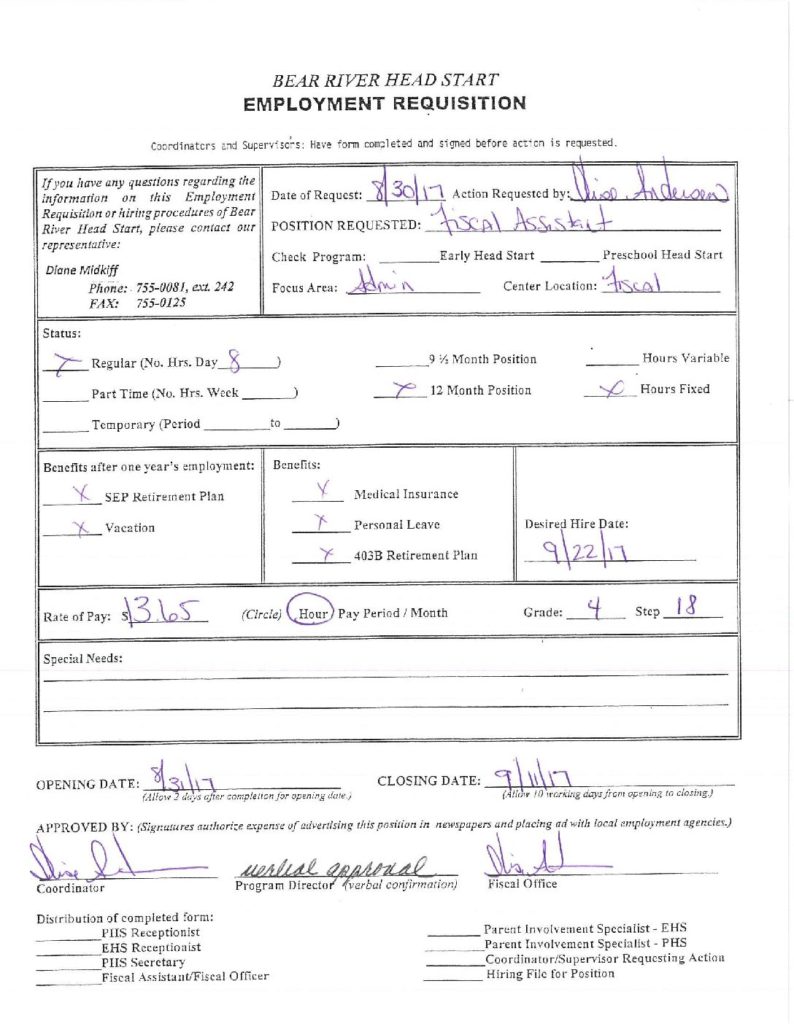 BEAR RIVER HEAD START
EMPLOYMENT REQUISITION
Coordinators and Supervisors: Have form completed and signed before action is requested.
If you have any questions regarding the
information on this Employment
Requisition or hiring procedures of Bear
River Head Start, please contact our
representative:
Diane Midkiff
Phone: 755-0081, ext. 242
FAX: 755-0125
Date of Request: 8/30/17 Action Requested by: Andersen
POSITION REQUESTED: Fiscal Assistant
Check Program: ______ Early Head Start ______ Preschool Head Start
Focus Area: Admin Center Location: Fiscal
Status:
X Regular (No. Hrs. Day 8 )
______ 9 ½ Month Position
______ Hours Variable
______ Part Time (No. Hrs. Week ______)
X 12 Month Position
X Hours Fixed
______ Temporary (Period ______ to ______)
Benefits after one year's employment:
X SEP Retirement Plan
X Vacation
Benefits:
X Medical Insurance
X Personal Leave
X 403B Retirement Plan
Desired Hire Date:
9/22/17
Rate of Pay: $13.65 (Circle) Hour Pay Period / Month Grade: 4 Step 18
Special Needs:
OPENING DATE: 8/31/17 CLOSING DATE: 9/11/17
(Allow 2 days after completion for opening date.) (Allow 10 working days from opening to closing.)
APPROVED BY: (Signatures authorize expense of advertising this position in newspapers and placing ad with local employment agencies.)
verbal approval
Coordinator Program Director (verbal confirmation) Fiscal Office
Distribution of completed form:
______ PHS Receptionist
______ EHS Receptionist
______ PHS Secretary
______ Fiscal Assistant/Fiscal Officer
______ Parent Involvement Specialist - EHS
______ Parent Involvement Specialist - PHS
______ Coordinator/Supervisor Requesting Action
______ Hiring File for Position